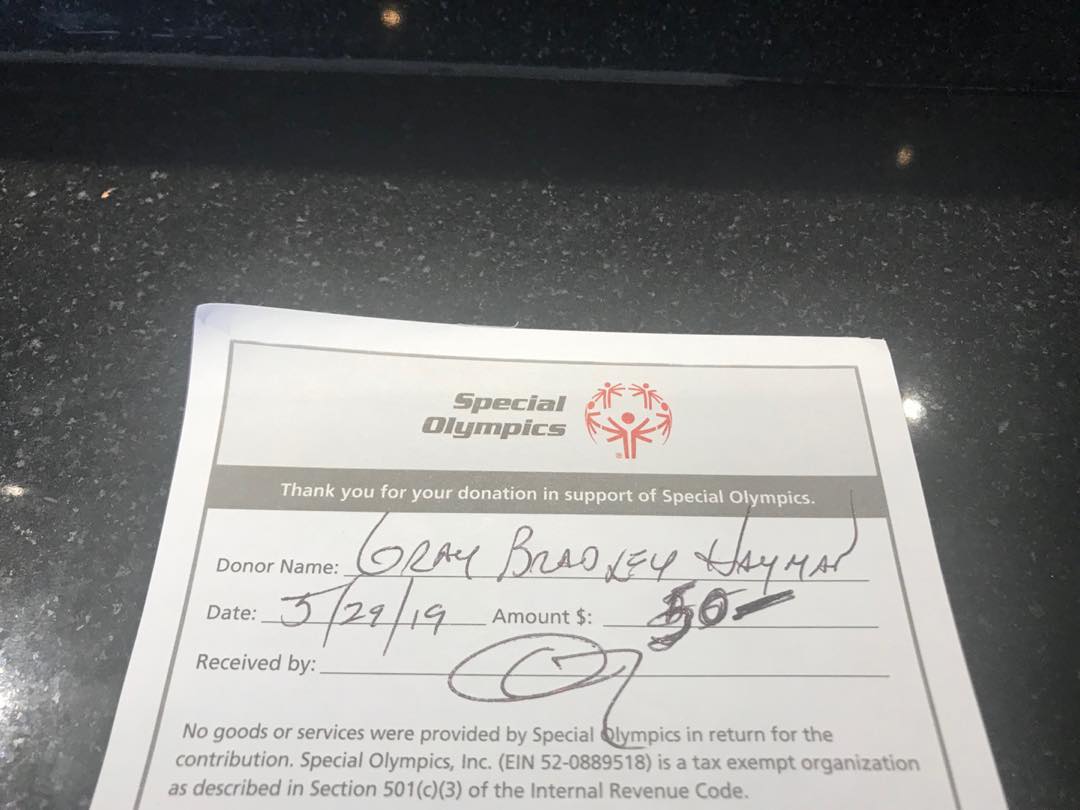 Special
Olympics
Thank you for your donation in support of Special Olympics.
Donor Name: GRAY BRADLEY HAYMAN
Date: 5/29/19 Amount $: 50-
Received by:
No goods or services were provided by Special Olympics in return for the
contribution. Special Olympics, Inc. (EIN 52-0889518) is a tax exempt organization
as described in Section 501(c)(3) of the Internal Revenue Code.